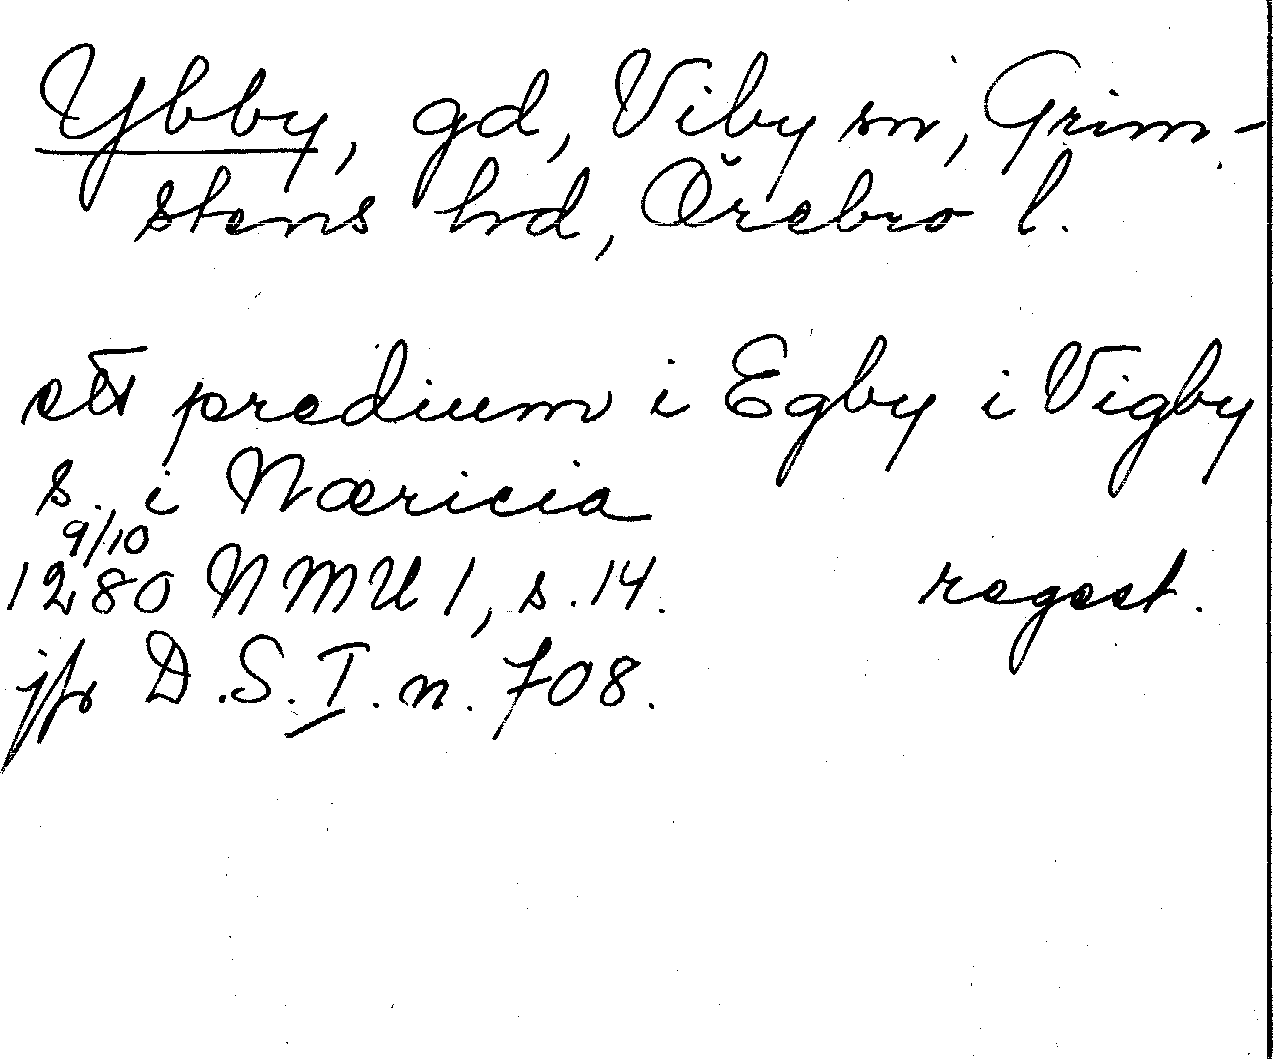 Ybby, gd, Viby sn, Grim-
stens hd, Örebro l.
ett predium i Egby i Vigby
s. i Næricia
9/10
1280 NMU 1, s. 14. regest.
jfr D.S.I. n. 708.